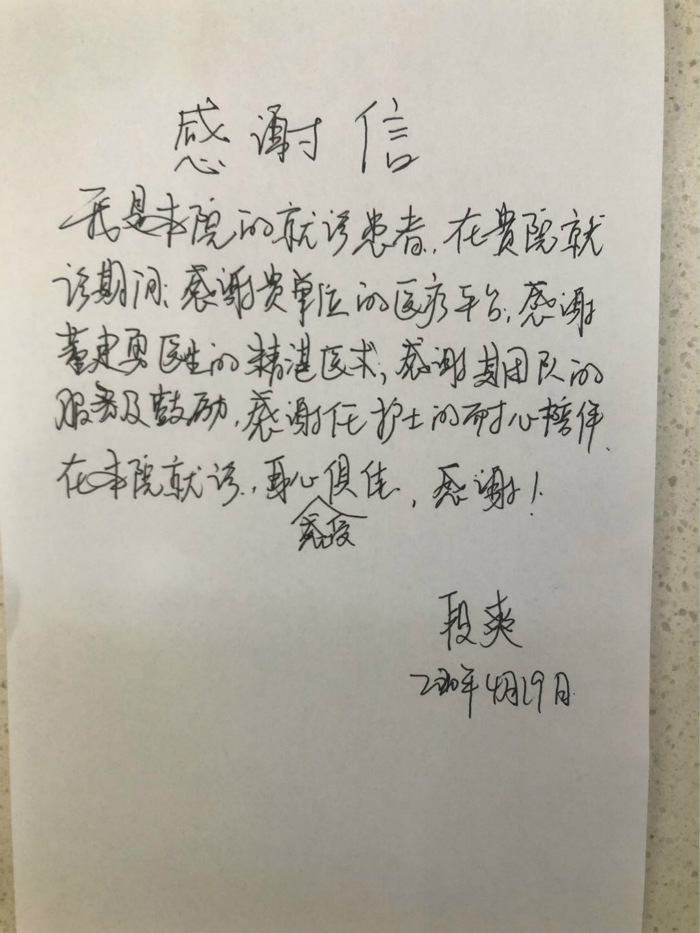 感谢信
我是本院的就诊患者,在贵院就
诊期间:感谢贵单位的医疗平台,感谢
董建勇医生的精湛医术,感谢其团队的
服务及鼓励,感谢任护士的耐心陪伴.
在本院就诊,身心俱佳,感谢!
感受
段爽
2020年4月29日